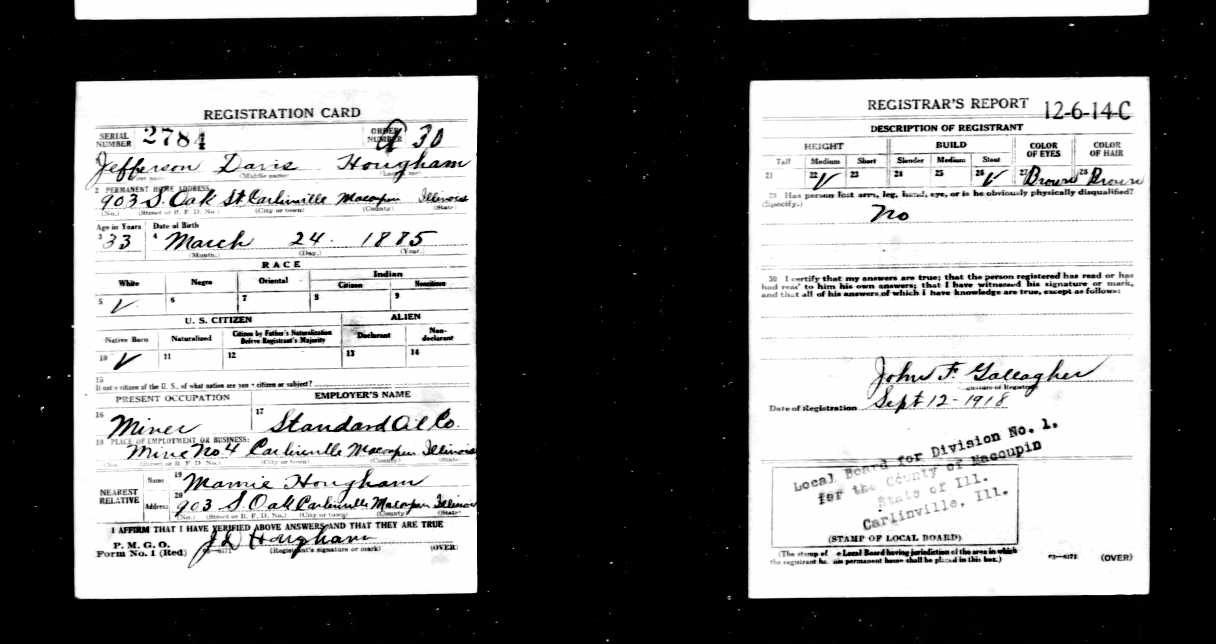 REGISTRATION CARD
SERIAL NUMBER 2784 ORDER NUMBER A 30
Jefferson Davis Hougham
2 PERMANENT HOME ADDRESS
903 S. Oak St Carlinville Macoupin Illinois
(No.) (Street or R. F. D. No.) (City or town) (County) (State)
Age in Years Date of Birth
3 33 4 March 24. 1885
(Month.) (Day.) (Year.)
RACE
White Negro Oriental Indian
Citizen Noncitizen
5 ✓ 6 7 8 9
U. S. CITIZEN ALIEN
Native Born Naturalized Citizen by Father's Naturalization Before Registrant's Majority Declarant Non-declarant
10 ✓ 11 12 13 14
15
If not a citizen of the U. S., of what nation are you a citizen or subject?
PRESENT OCCUPATION EMPLOYER'S NAME
16 Miner 17 Standard Oil Co.
18 PLACE OF EMPLOYMENT OR BUSINESS:
Mine No. 4 Carlinville Macoupin Illinois
(No.) (Street or R. F. D. No.) (City or town) (County) (State)
NEAREST RELATIVE Name 19 Mamie Hougham
Address 20 903 S. Oak Carlinville Macoupin Illinois
(No.) (Street or R. F. D. No.) (City or town) (County) (State)
I AFFIRM THAT I HAVE VERIFIED ABOVE ANSWERS AND THAT THEY ARE TRUE
P. M. G. O.
Form No. 1 (Red) 03—6171 J D Hougham (Registrant's signature or mark) (OVER)
REGISTRAR'S REPORT 12-6-14-C
DESCRIPTION OF REGISTRANT
HEIGHT BUILD COLOR OF EYES COLOR OF HAIR
Tall Medium Short Slender Medium Stout
21 22 ✓ 23 24 25 26 ✓ 27 Brown 28 Brown
29 Has person lost arm, leg, hand, eye, or is he obviously physically disqualified?
(Specify.)
No
30 I certify that my answers are true; that the person registered has read or has
had read to him his own answers; that I have witnessed his signature or mark,
and that all of his answers of which I have knowledge are true, except as follows:
John F. Gallagher
Date of Registration Sept 12-1918
Local Board for Division No. 1.
for the County of Macoupin
State of Ill.
Carlinville, Ill.
(STAMP OF LOCAL BOARD)
(The stamp of Local Board having jurisdiction of the area in which
the registrant has his permanent home shall be placed in this box.) 03—6171 (OVER)